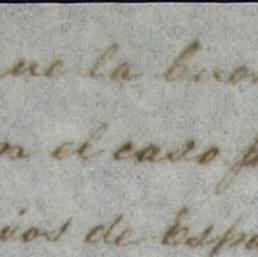 ue la buen
n el caso p
ios de Espa